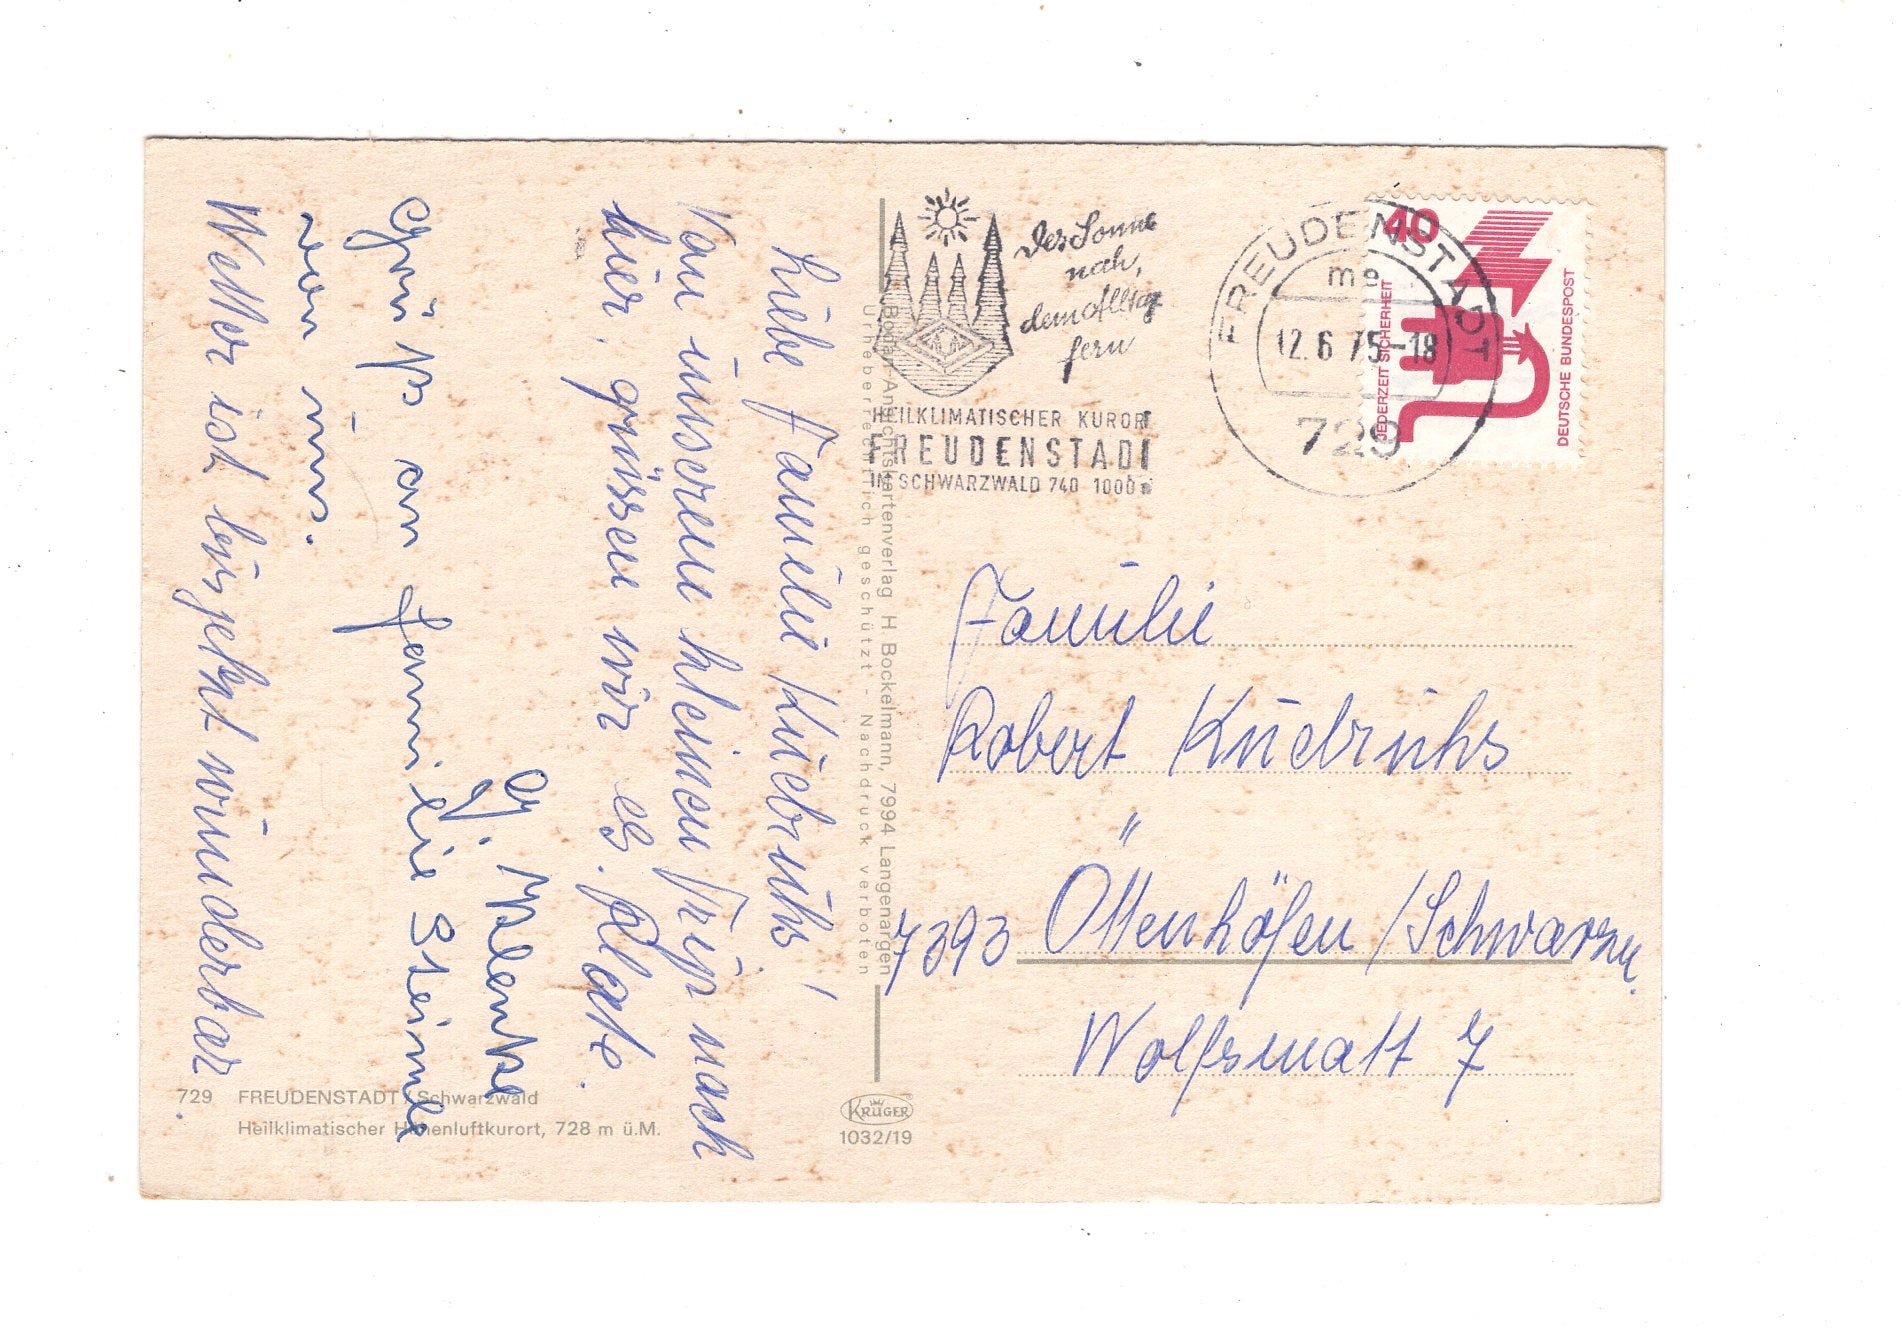 Liebe Familie Kudruhs!
Von unserem kleinen Trip nach
hier, grüssen wir es. Platte.
G. Klenke
Gruß an Familie Steimle
von uns.
Wetter ist bis jetzt wunderbar.
729 FREUDENSTADT / Schwarzwald
Heilklimatischer Höhenluftkurort, 728 m ü.M.
Bodan-Ansichtskartenverlag H. Bockelmann, 7994 Langenargen
Urheberrechtlich geschützt - Nachdruck verboten
KRÜGER
1032/19
Der Sonne
nah,
dem Alltag
fern
HEILKLIMATISCHER KURORT
FREUDENSTADT
IM SCHWARZWALD 740 1000 m
FREUDENSTADT
me
12.6.75-18
729
40
JEDERZEIT SICHERHEIT
DEUTSCHE BUNDESPOST
Familie
Robert Kudruhs
7593 Ottenhöfen / Schwarzw.
Wolfsmatt 7